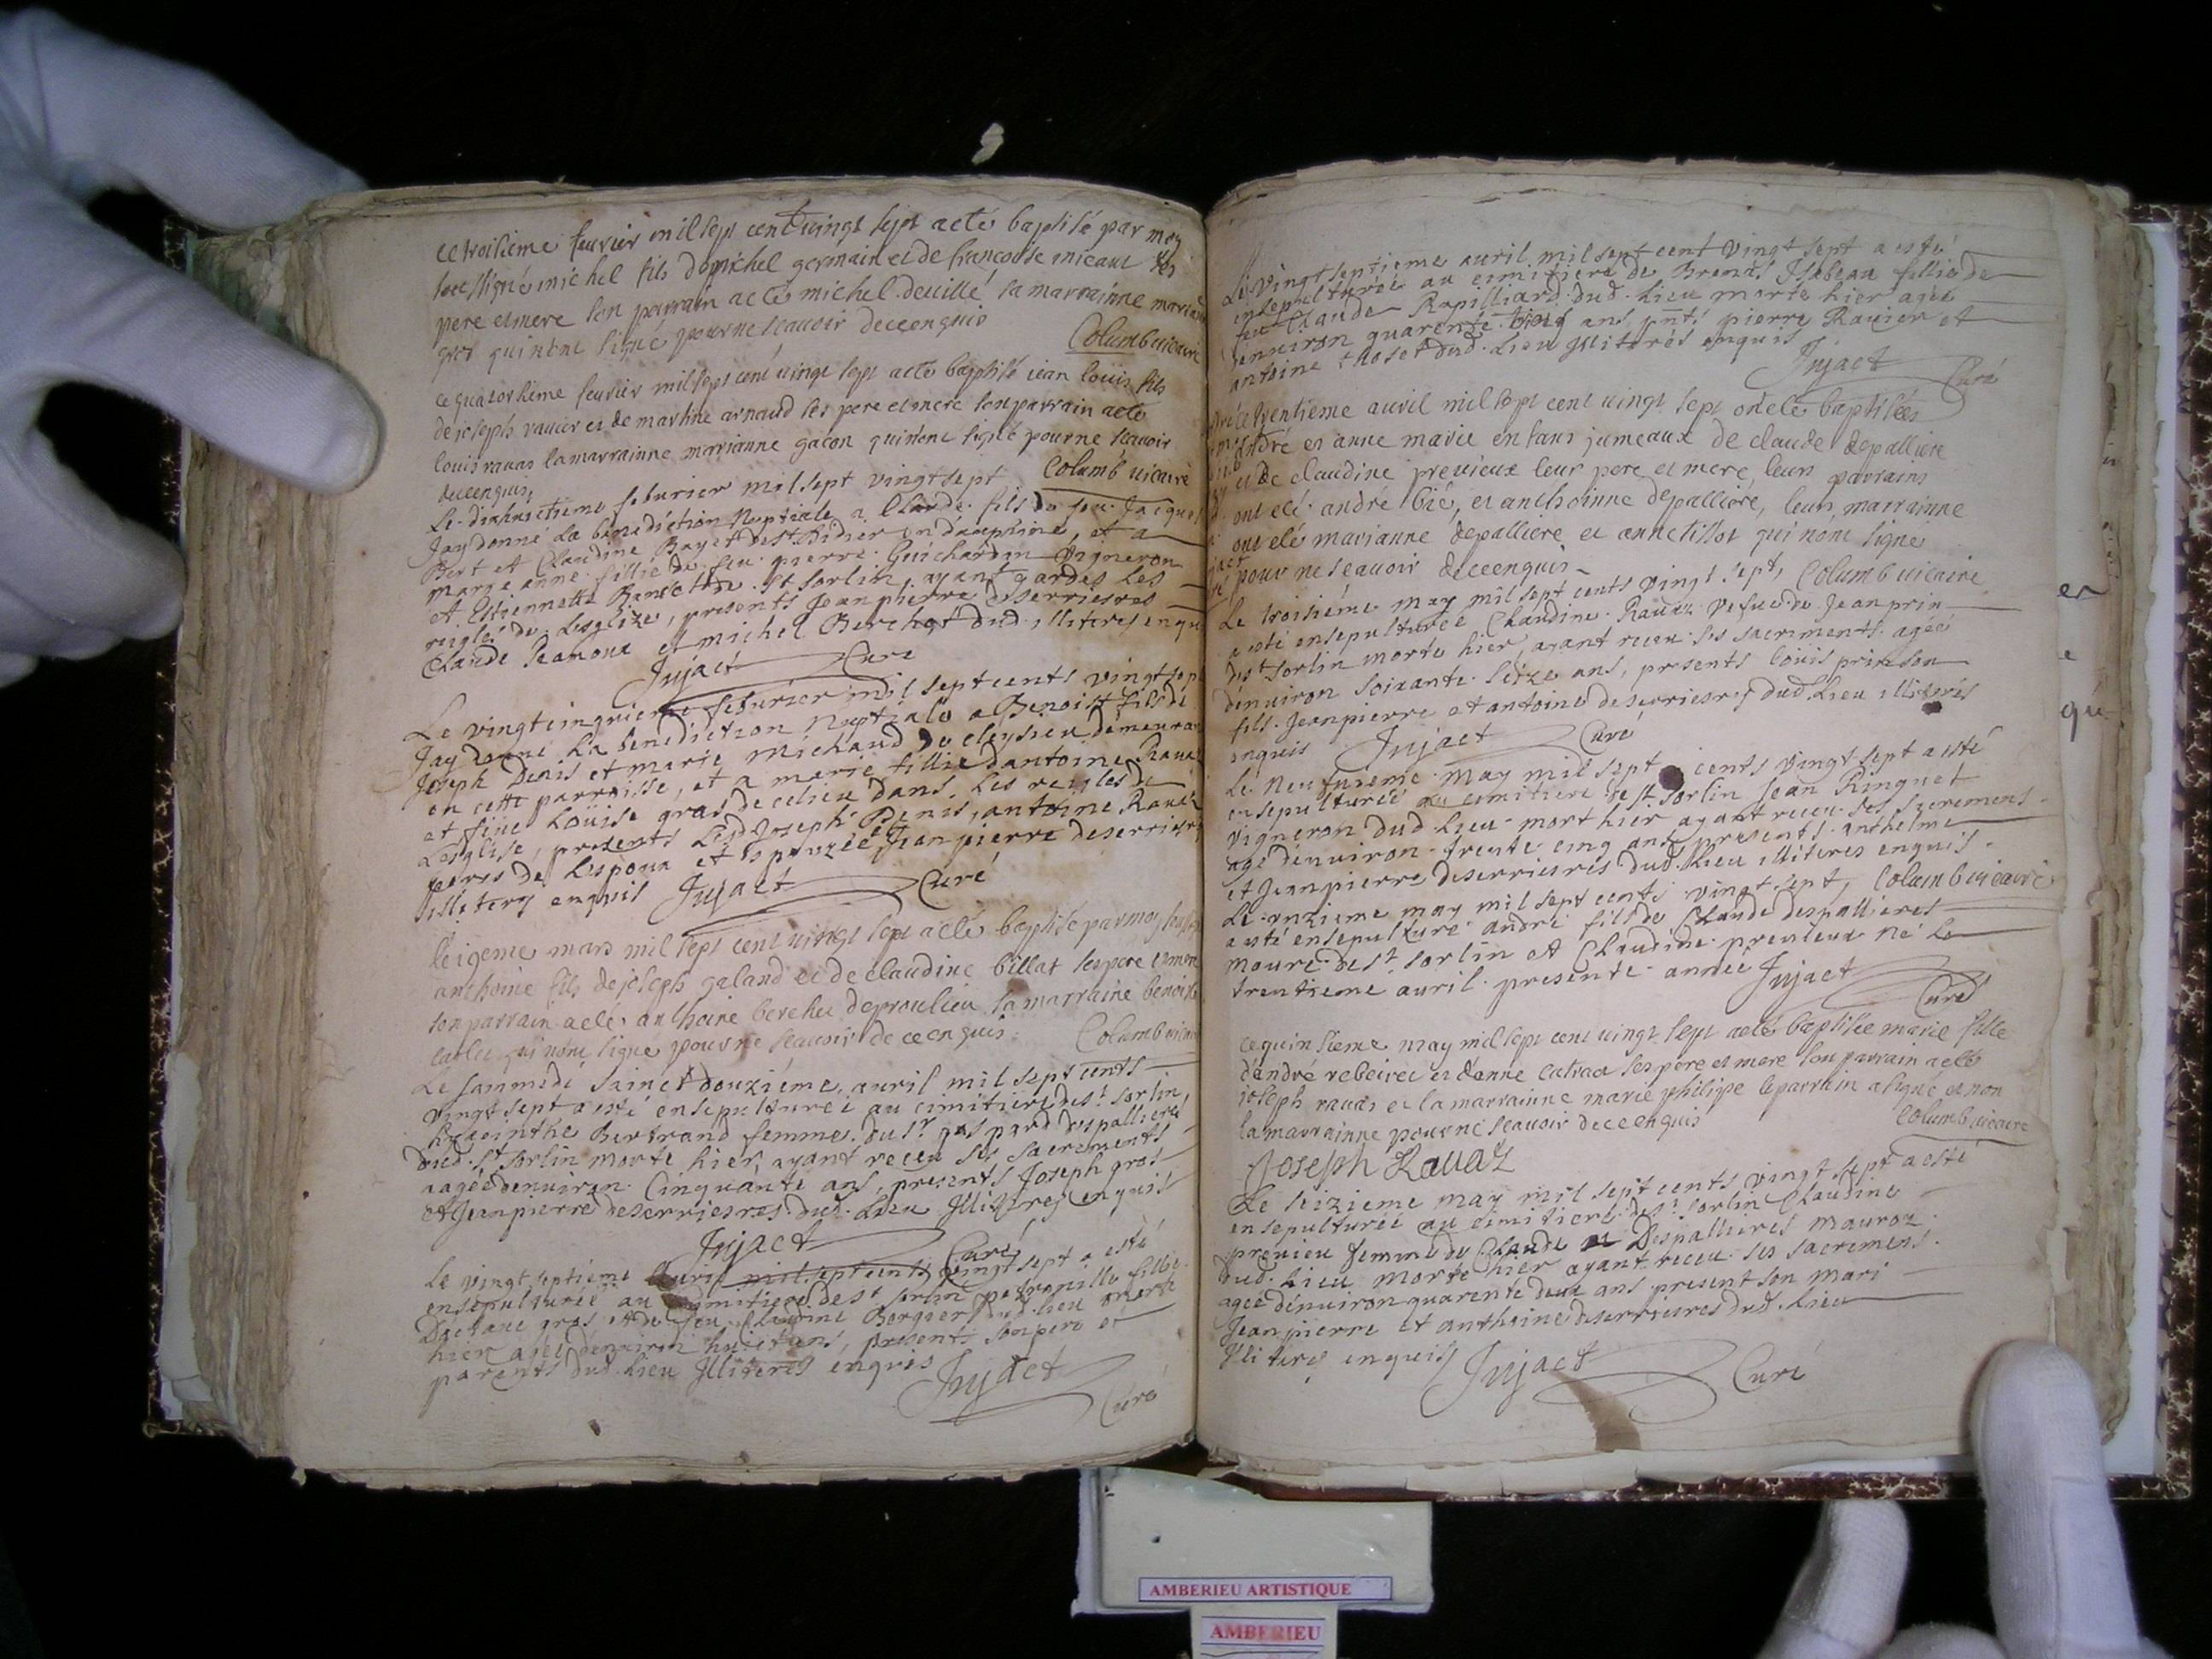 ce troisieme feurier mil sept cent vingt sept a eté baptisé par moy
soussigné michel fils de michel germain et de francoise micaut ses
pere et mere son parrain a eté michel deuillé sa marrainne
gros qui n'ont signé pour ne scauoir de ce enquis
Columb uicaire
ce quatorsieme feurier mil sept cent uingt sept a eté baptisé iean louis fils
de ioseph rauier et de martine arnaud ses pere et mere son parrain a eté
louis rauas la marrainne marianne gacon qui n'ont signé pour ne scauoir
de ce enquis
Columb uicaire
Le dixhuictieme feburier mil sept vingt sept
Jay donné La benediction Nuptiale a Claude fils de feu Jacques
Bert et Claudine Bayet de st Didier en dauphiné, et a
marie anne fillie de feu pierre Guichardin Vigneron
et Estiennette de st sorlin, ayant gardés Les
regles de Lesglize, presents Jean pierre deserrieres
Claude et michel Berchet dud. illiterez
Jujact Curé
Le vingtcinquieme feburier mil sept cents vingt sept
Jay donné La benediction Nuptiale a Benoist fils de
Joseph Denis et marie Michaud de cleysieu
en cette parroisse, et a marie fillie dantoine
et Loüise gras de ce lieu dans Les reigles de
Lesglise, presents Led Joseph Denis, antoine
peres de Lespoux et Jean pierre
illiterez enquis Jujact Curé
le mars mil sept cent uingt sept a eté baptisé par moy
anthoine fils de ioseph galand et de claudine billat ses pere et mere
son parrain a eté anthoine berchet de proulieu sa marraine
qui n'ont signé pour ne scauoir de ce enquis
Columb
Le sammedi sainct douziéme auril mil sept cents
vingt sept a esté ensepulturée au cimitiere de st sorlin
hyacinthe Bertrand femme du sr gaspard despallieres
dud. st sorlin morte hier, ayant receu ses sacrements
aagée denuiron Cinquante ans, presents Joseph gros
et Jean pierre deserriesres dud. Lieu Illiterez enquis
Jujact Curé
Le vingt septieme auril mil sept cents vingt sept a esté
ensepulturée au cimitiere de st sorlin petronille fillie
gros et de feu Claudine Borgier dud. lieu morte
hier agée denuiron huict ans, presents son pere et
parents dud. Lieu Illiteres enquis Jujact
Curé
Le vingt septieme auril mil sept cent vingt sept a esté
ensepulturée au cimitiere de Isabeau fillie de
feu Claude Rapilliard dud. Lieu morte hier agée
denuiron quarente ans, pnts pierre Rauier et
antoine thoset dud. Lieu Illiterés enquis
Jujact Curé
trentieme auril mil sept cent uingt sept ont eté baptisées
andré et anne marie enfans jumeaux de claude depalliere
et de claudine preuieux leur pere et mere, leurs parrains
ont eté andre bié, et anthoinne depalliere, leurs marrainne
ont eté marianne depalliere et anne tissot qui n'ont signé
pour ne scauoir de ce enquis
Columb uicaire
Le troisiéme may mil sept cents vingt sept,
a esté ensepulturée Claudine Rauaz vefue de Jean prin
de st sorlin morte hier, ayant receu ses sacrements agée
dénuiron soixante seize ans, presents loüis prin son
fils Jean pierre et antoine deserriesres dud Lieu illiterés
enquis Jujact Curé
Le Neufuieme may mil sept cents vingt sept a esté
ensepulturée au cimitiere de st sorlin Jean Ringuet
Vigneron dud Lieu mort hier ayant receu ses sacremens
agé dénuiron trente cinq ans presents anthelme
et Jean pierre deserriesres dud. Lieu illiteres enquis
Columb uicaire
Le onzieme may mil sept cents vingt sept,
a esté ensepulturé andré fils de Claude despallieres
de st sorlin et Claudine preuieux né Le
trentieme auril presente année Jujact
Curé
ce quinsieme may mil sept cent uingt sept a eté baptisée marie fille
d'andré et d'anne ses pere et mere son parrain a eté
ioseph rauas et la marrainne marie philippe le parrain a signé et non
la marrainne pour ne scauoir de ce enquis
Columb uicaire
Joseph Rauaz
Le seizieme may mil sept cents vingt sept a esté
ensepulturée au cimitiere de st sorlin Claudine
preuieu femme de Claude Despallieres
dud. Lieu morte hier ayant receu ses sacremens
agée dénuiron quarente deux ans present son mari
Jean pierre et anthoine deserriesres dud. Lieu
Illiterez enquis Jujact Curé
AMBERIEU ARTISTIQUE
AMBERIEU